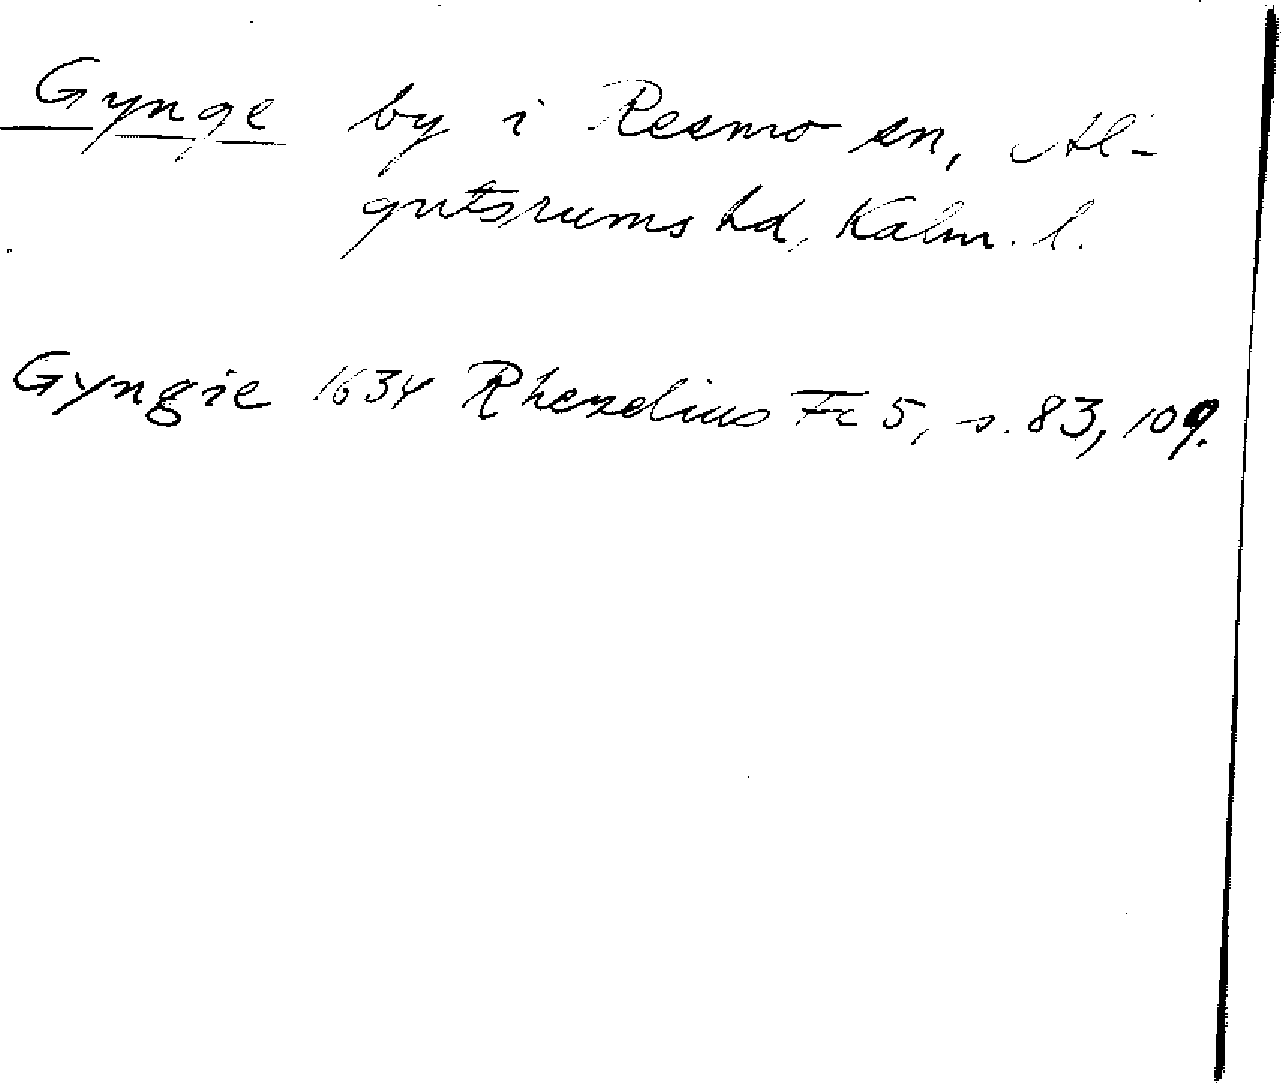 Gynge by i Resmo sn, Al-
gutsrums hd, Kalm. l.
Gyngie 1634 Rhezelius Fc 5, s. 83, 109.